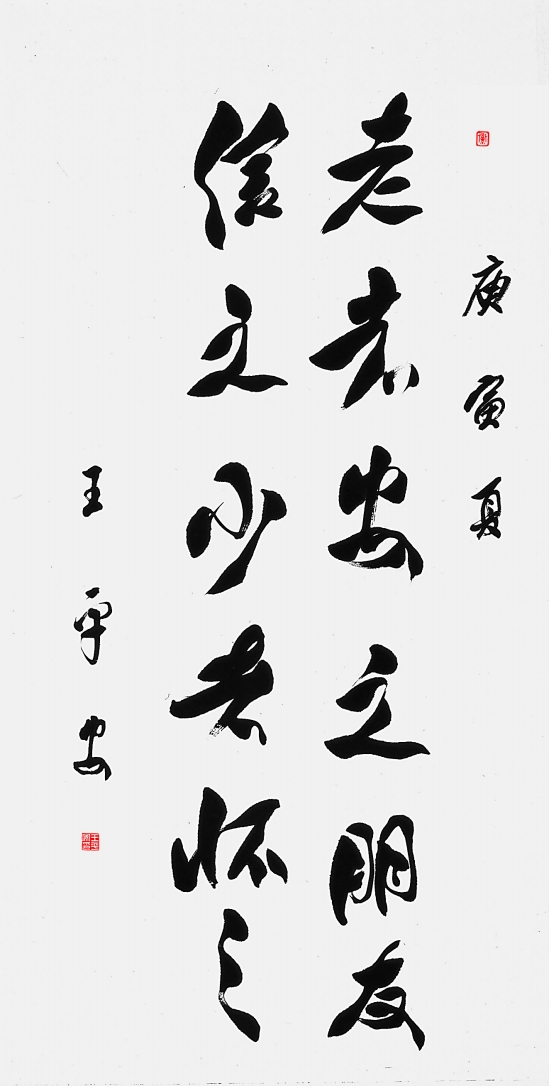 庚寅夏
老者安之朋友
信之少者怀之
王平安